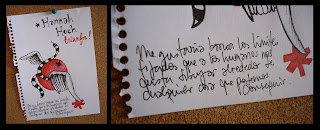 Hannah
Hoch
triunfa!
Me gustaría borrar los límites
fijados, que a los humanos nos
gusta dibujar alrededor de
cualquier cosa que podamos
conseguir.